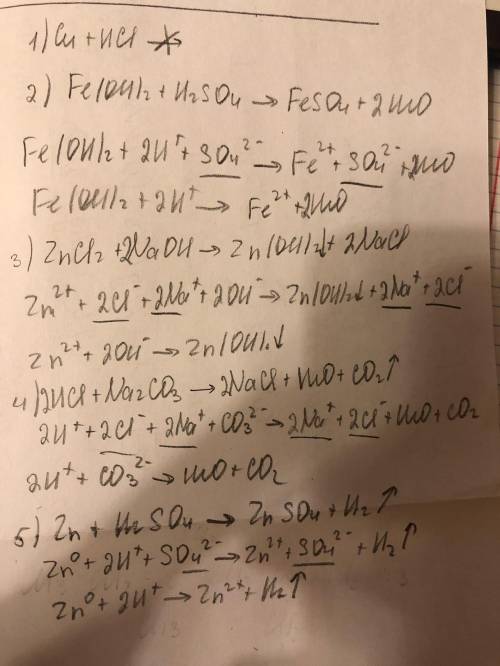 1) Cu + HCl ↛
2) Fe(OH)2 + H2SO4 → FeSO4 + 2H2O
Fe(OH)2 + 2H⁺ + SO4²⁻ → Fe²⁺ + SO4²⁻ + 2H2O
Fe(OH)2 + 2H⁺ → Fe²⁺ + 2H2O
3) ZnCl2 + 2NaOH → Zn(OH)2↓ + 2NaCl
Zn²⁺ + 2Cl⁻ + 2Na⁺ + 2OH⁻ → Zn(OH)2↓ + 2Na⁺ + 2Cl⁻
Zn²⁺ + 2OH⁻ → Zn(OH)2↓
4) 2HCl + Na2CO3 → 2NaCl + H2O + CO2↑
2H⁺ + 2Cl⁻ + 2Na⁺ + CO3²⁻ → 2Na⁺ + 2Cl⁻ + H2O + CO2
2H⁺ + CO3²⁻ → H2O + CO2
5) Zn + H2SO4 → ZnSO4 + H2↑
Zn⁰ + 2H⁺ + SO4²⁻ → Zn²⁺ + SO4²⁻ + H2↑
Zn⁰ + 2H⁺ → Zn²⁺ + H2↑